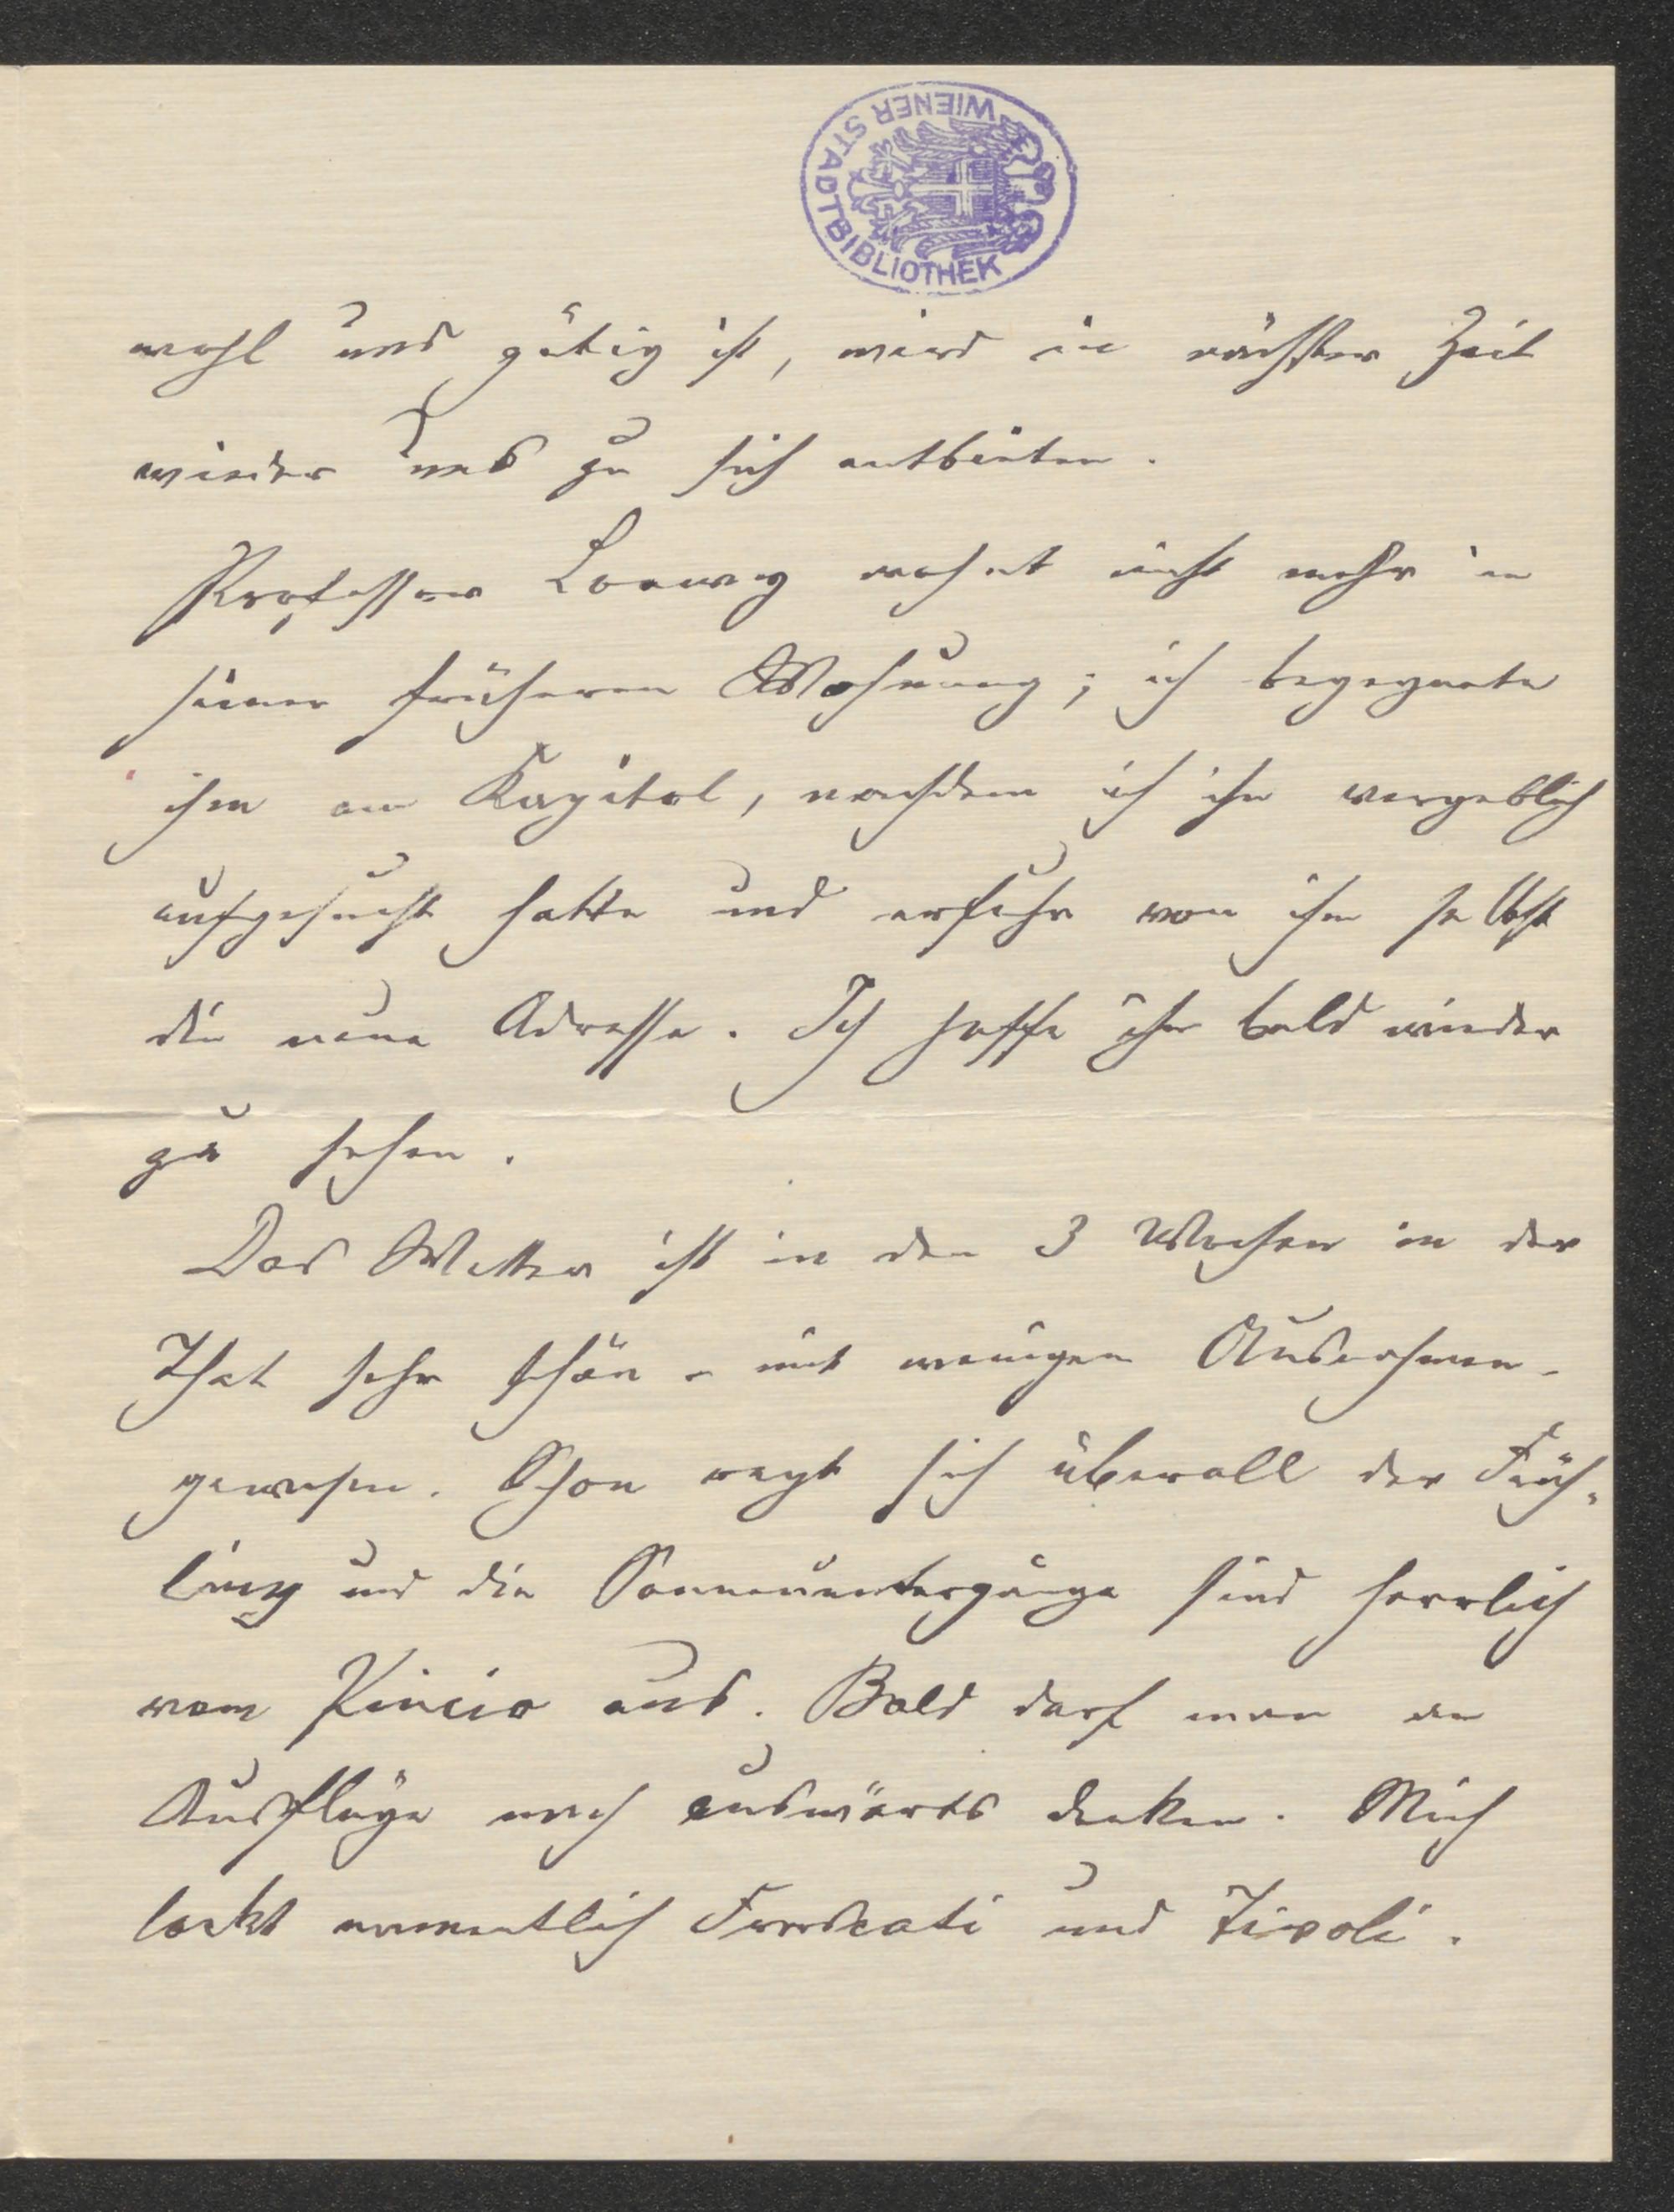 WIENER STADTBIBLIOTHEK
wohl und gütig ist, wird in nächster Zeit
wieder uns zu sich entbieten.
Professor Loewy wohnt nicht mehr in
seiner früheren Wohnung; ich begegnete
ihm am Kapitol, nachdem ich ihn vergeblich
aufgesucht hatte und erfuhr von ihm selbst
die neue Adresse. Ich hoffe ihn bald wieder
zu sehen.
Das Wetter ist in den 3 Wochen in der
That sehr schön - mit wenigen Ausnahmen -
gewesen. Schon regt sich überall der Früh-
ling und die Sonnenuntergänge sind herrlich
vom Pincio aus. Bald darf man an
Ausflüge nach auswärts denken. Mich
lockt namentlich Frascati und Tivoli.